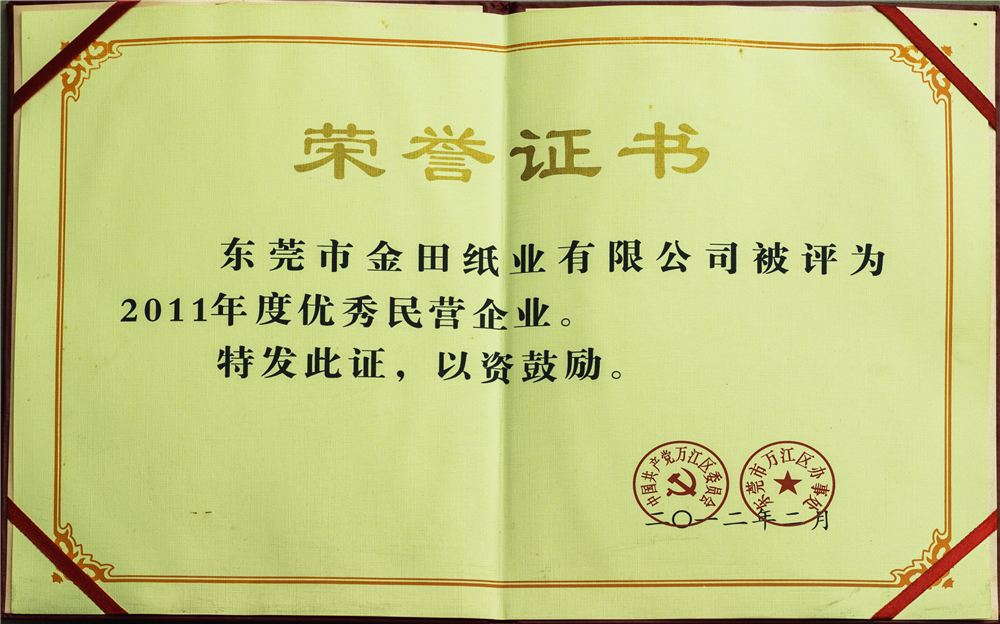 荣誉证书
东莞市金田纸业有限公司被评为
2011年度优秀民营企业。
特发此证，以资鼓励。
中国共产党万江区委员会
东莞市万江区办事处
二〇一二年二月